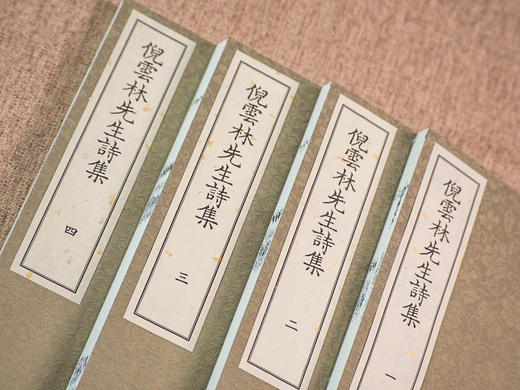 倪雲林先生詩集
一
倪雲林先生詩集
二
倪雲林先生詩集
三
倪雲林先生詩集
四